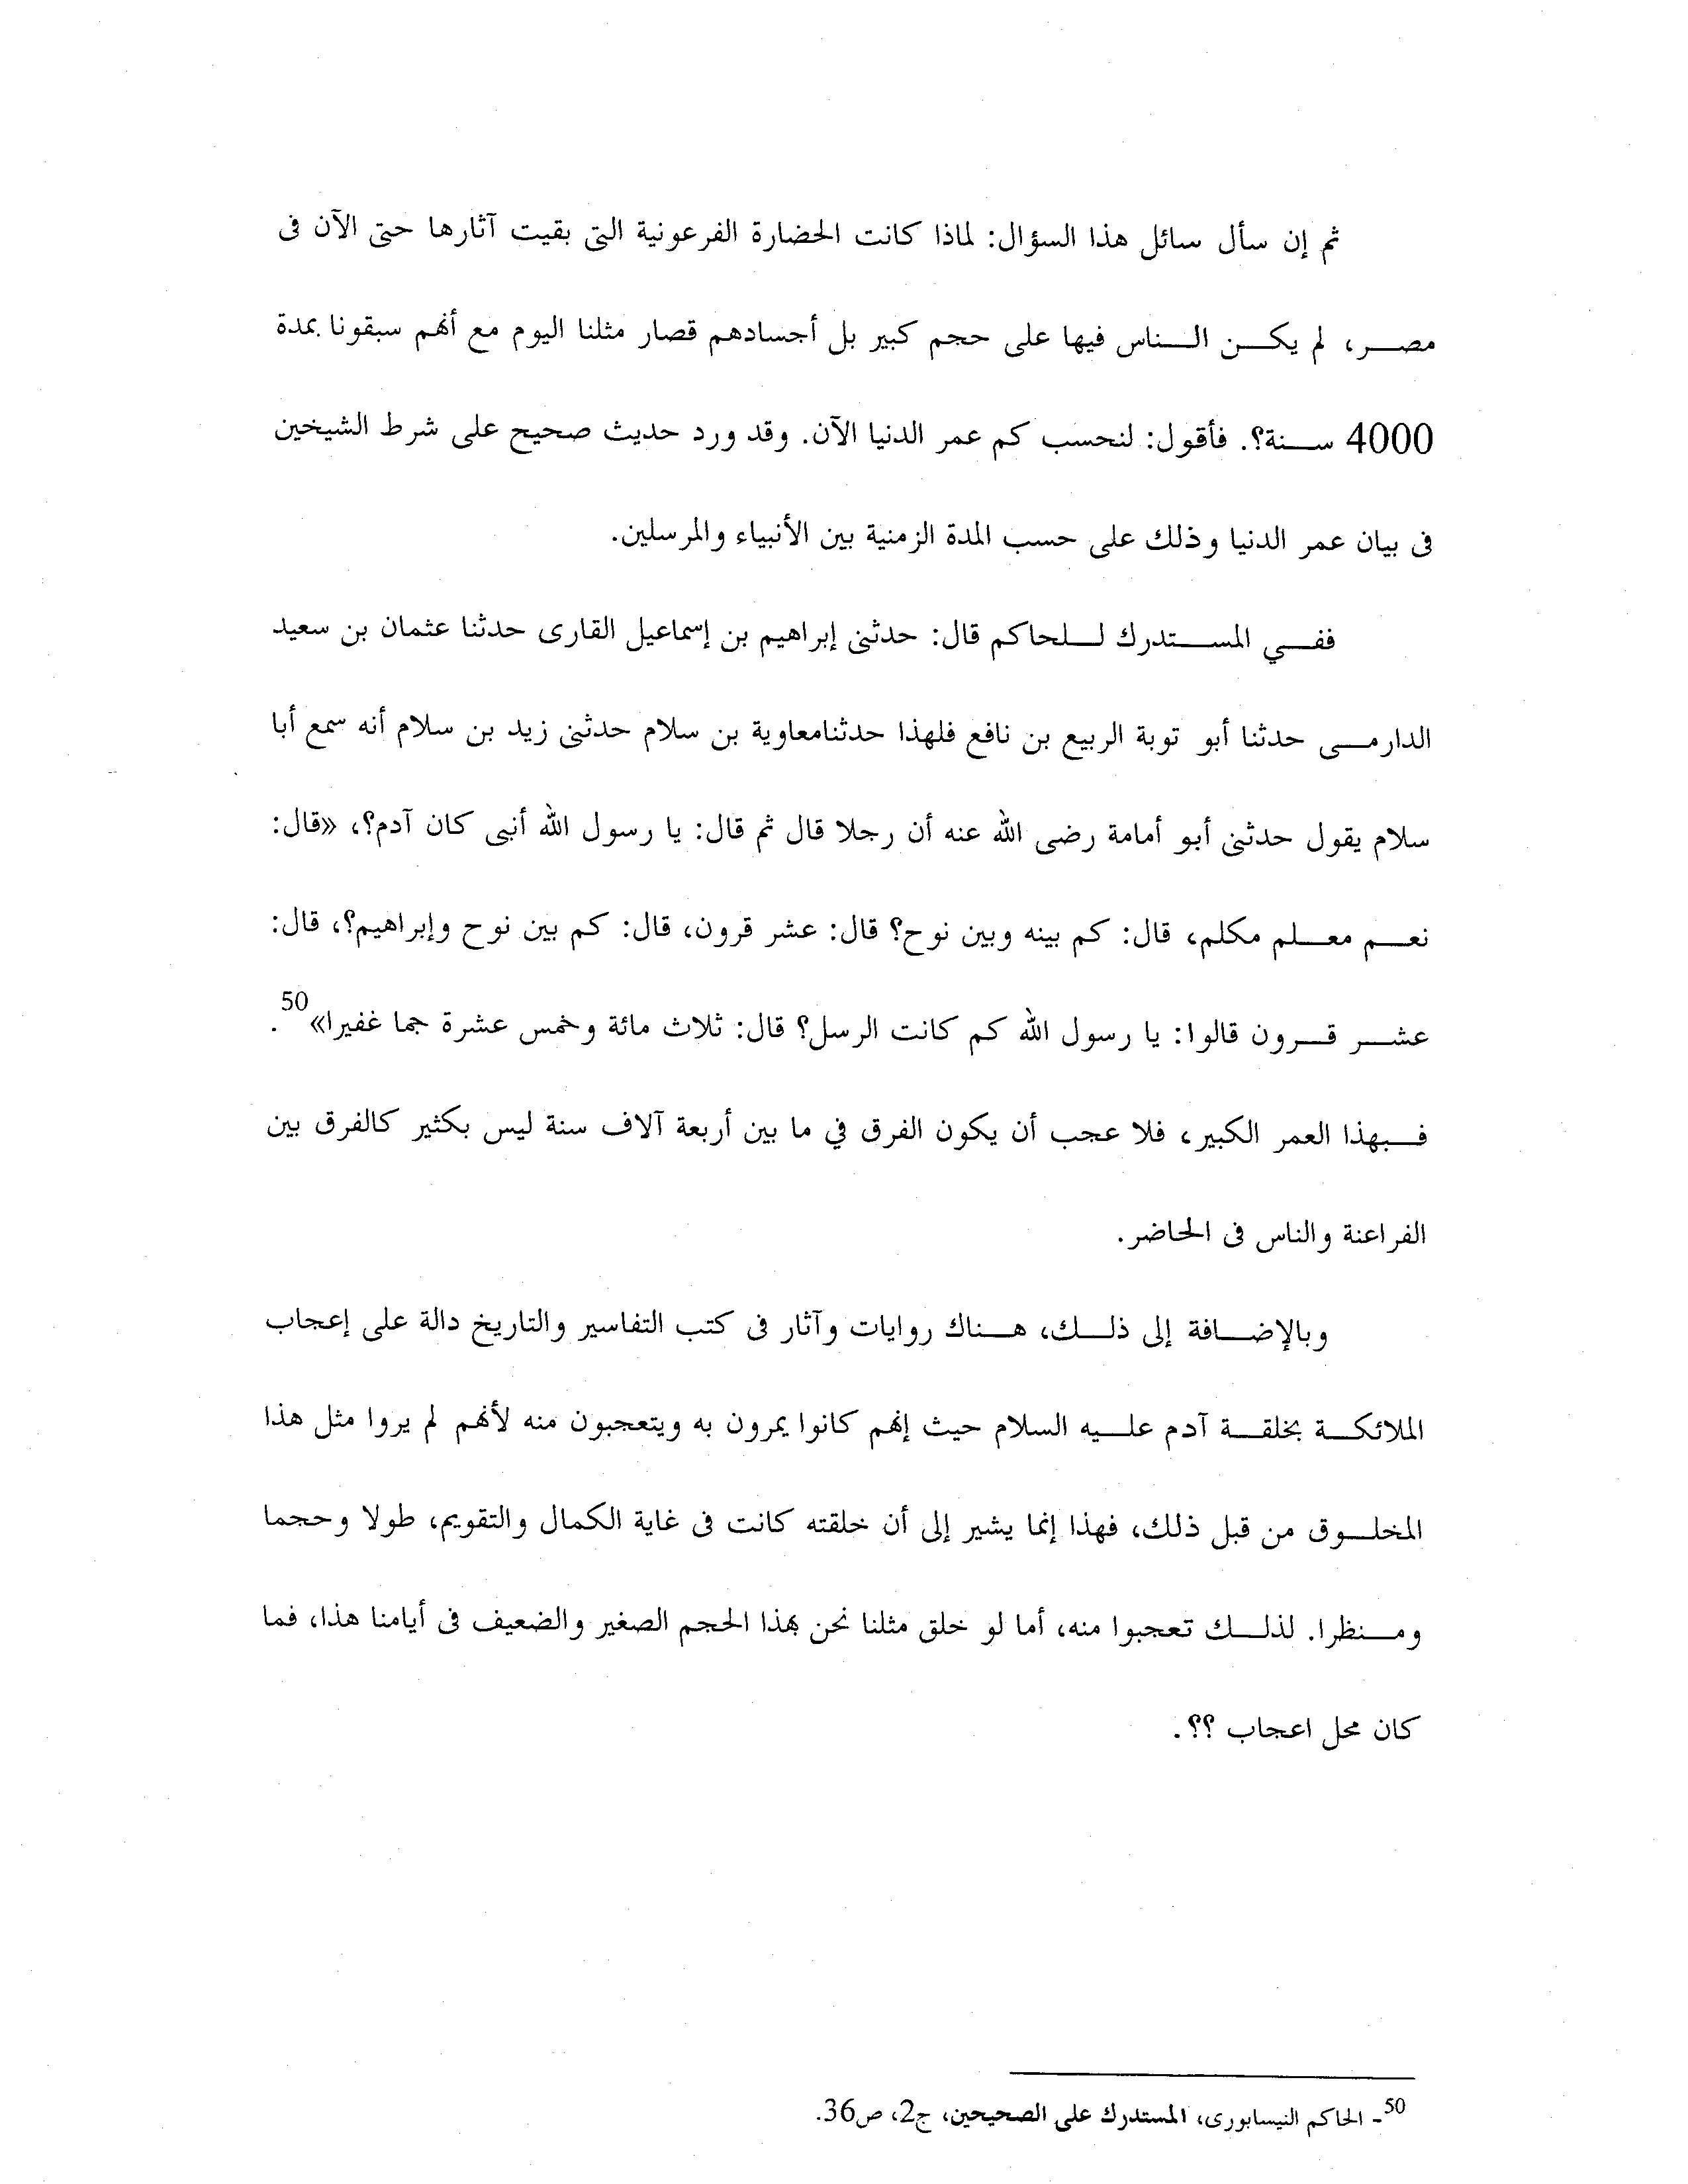 ثم إن سأل سائل هذا السؤال: لماذا كانت الحضارة الفرعونية التى بقيت آثارها حتى الآن فى
مصر، لم يكن الناس فيها على حجم كبير بل أجسادهم قصار مثلنا اليوم مع أنهم سبقونا بمدة
4000 سنة؟. فأقول: لنحسب كم عمر الدنيا الآن. وقد ورد حديث صحيح على شرط الشيخين
فى بيان عمر الدنيا وذلك على حسب المدة الزمنية بين الأنبياء والمرسلين.
ففي المستدرك للحاكم قال: حدثنى إبراهيم بن إسماعيل القارى حدثنا عثمان بن سعيد
الدارمى حدثنا أبو توبة الربيع بن نافع فلهذا حدثنامعاوية بن سلام حدثنى زيد بن سلام أنه سمع أبا
سلام يقول حدثنى أبو أمامة رضى الله عنه أن رجلا قال ثم قال: يا رسول الله أنبى كان آدم؟، «قال:
نعم معلم مكلم، قال: كم بينه وبين نوح؟ قال: عشر قرون، قال: كم بين نوح وإبراهيم؟، قال:
عشر قرون قالوا: يا رسول الله كم كانت الرسل؟ قال: ثلاث مائة وخمس عشرة جما غفيرا»50.
فبهذا العمر الكبير، فلا عجب أن يكون الفرق في ما بين أربعة آلاف سنة ليس بكثير كالفرق بين
الفراعنة والناس فى الحاضر.
وبالإضافة إلى ذلك، هناك روايات وآثار فى كتب التفاسير والتاريخ دالة على إعجاب
الملائكة بخلقة آدم عليه السلام حيث إنهم كانوا يمرون به ويتعجبون منه لأنهم لم يروا مثل هذا
المخلوق من قبل ذلك، فهذا إنما يشير إلى أن خلقته كانت فى غاية الكمال والتقويم، طولا وحجما
ومنظرا. لذلك تعجبوا منه، أما لو خلق مثلنا نحن بهذا الحجم الصغير والضعيف فى أيامنا هذا، فما
كان محل اعجاب ؟؟.
50- الحاكم النيسابورى، المستدرك على الصحيحين، ج2، ص36.